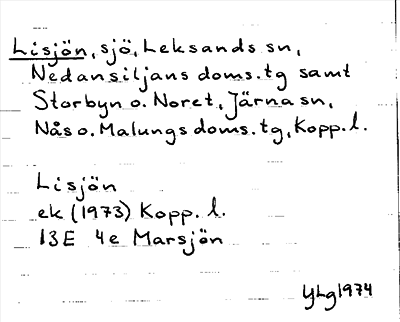 Lisjön, sjö, Leksands sn,
Nedansiljans doms.tg samt
Storbyn o. Noret, Järna sn,
Nås o. Malungs doms.tg, Kopp. l.
Lisjön
ek (1973) Kopp. l.
13E 4e Marsjön
YLg 1974